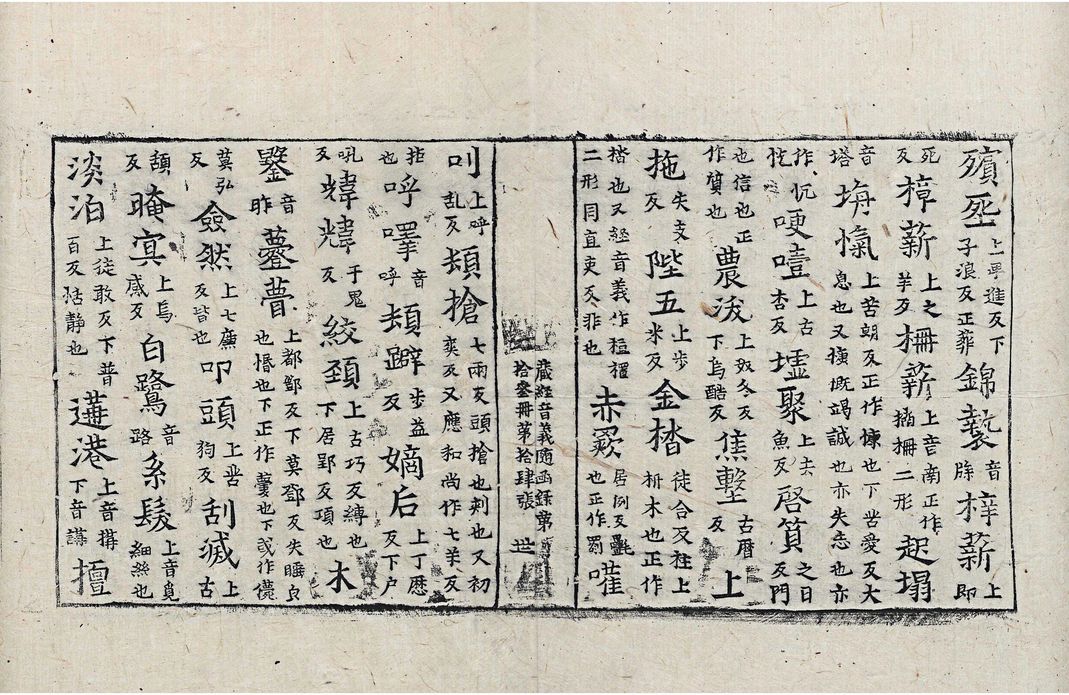 殯㘸上孚進反下子浪反正葬錦䙝音牒梓薪上即
死反樟薪上之羊反柟薪上音南正作𣔻柟二形起塌
音塔堋愾上苦朗反正作慷也下苦愛反大息也又摡既竭誠也亦失志也亦
作忾哽噎上古杏反墟聚上去魚反啓質之日反門
也信也正作質也農洨上奴冬反下烏酷反焦墼古曆反上
拖失支反陛五上步米反金㭼徒合反柱上枅木也正作
楷也又経音義作㯓㯿二形同直吏反非也赤罽居例反氍也正作罽嚾
藏経音義随函録第拾叁冊第拾肆張 世
叫上呼乱反頬搶七兩反頭搶也刺也又初奕反又應和尚作七羊反
拒也呼嚄音呼頬躃步益反嫡后上丁歷反下户
吼反煒煒于鬼反絞頚上古巧反縛也下居郢反項也木
鑿音昨薹瞢上都鄧反下莫鄧反失睡皃也惽也下正作懵也下或作儚
莫弘反僉然上七廉反皆也叩頭上苦狗反刮滅上古
頡反晻㝠上烏感反白鷺音路糸髮上音覓細絲也
淡泊上徒敢反下普百反恬静也蓮港上音搆下音講擅